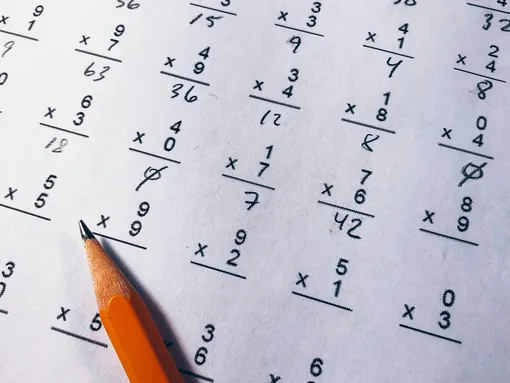 4
32
36
3
15
3
x 3
9
4
x 1
4
2
x 4
8
9
x 1
9
9
x 7
63
4
x 9
36
3
x 4
12
1
x 8
8
0
x 4
0
6
x 3
18
4
x 0
0
1
x 7
7
7
x 6
42
8
x 9
5
x 5
9
x 9
9
x 2
5
x 1
0
x 3
3
x 5
3
6
6
x